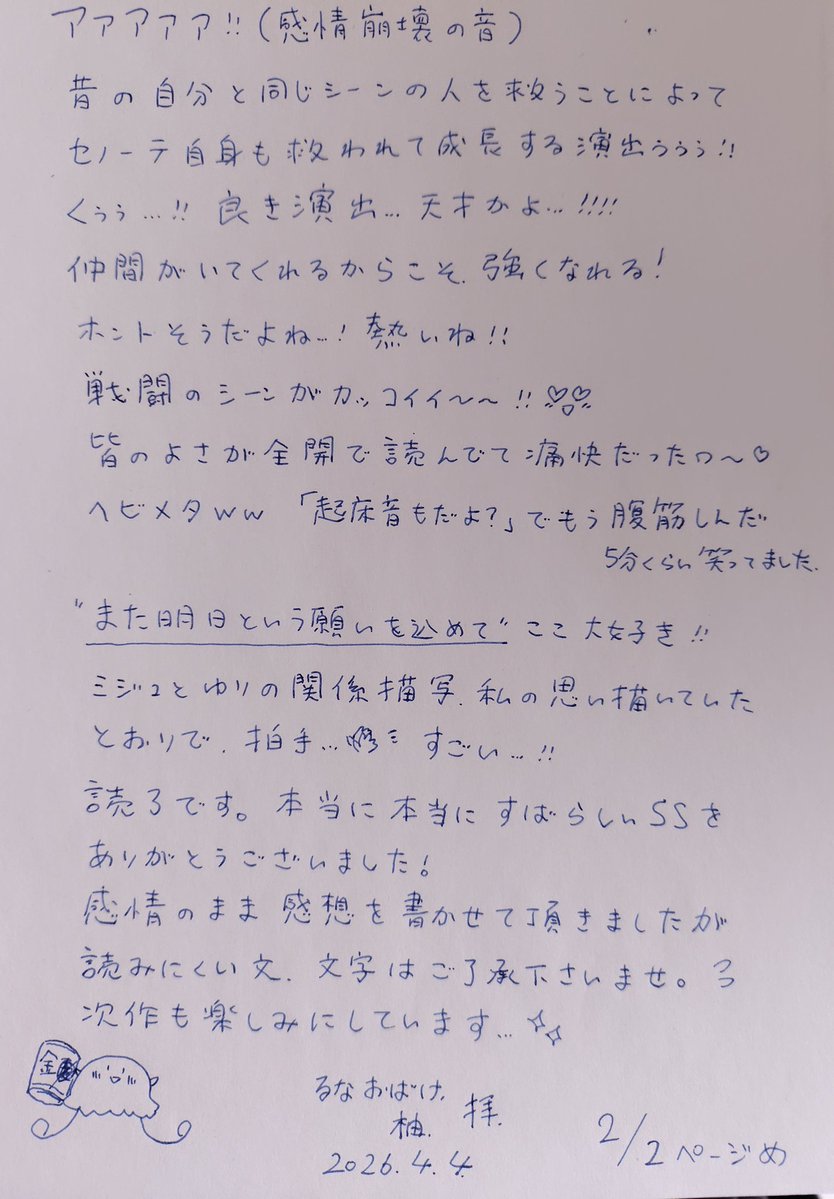 アァアァァ!!(感情崩壊の音)
昔の自分と同じシーンの人を救うことによって
セノーテ自身も救われて成長する演出ぅぅぅ!!
くぅぅ…!! 良き演出… 天才かよ…!!!!
仲間がいてくれるからこそ、強くなれる!
ホントそうだよね…! 熱いね!!
戦闘のシーンがカッコイイ〜〜!!♡♡
皆のよさが全開で読んでて痛快だったわ〜♡
ヘビメタww 「起床音もだよ?」でもう腹筋しんだ
5分くらい笑ってました.
"また明日という願いを込めて" ここ大好き!!
ミジュとゆりの関係描写、私の思い描いていた
とおりで、拍手… すごい…!!
読了です。本当に本当にすばらしいSSを
ありがとうございました!
感情のまま感想を書かせて頂きましたが
読みにくい文、文字はご了承下さいませ。
次作も楽しみにしています…
金
るなおばけ、
柚. 拝.
2026.4.4.
2/2ページめ